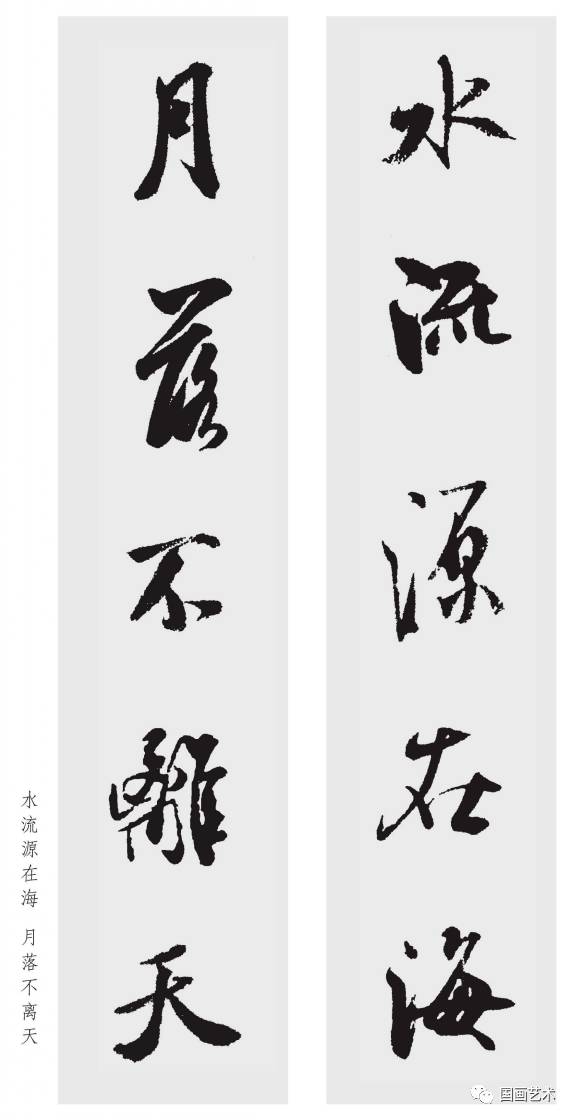 水流源在海
月落不離天
水流源在海 月落不离天
国画艺术